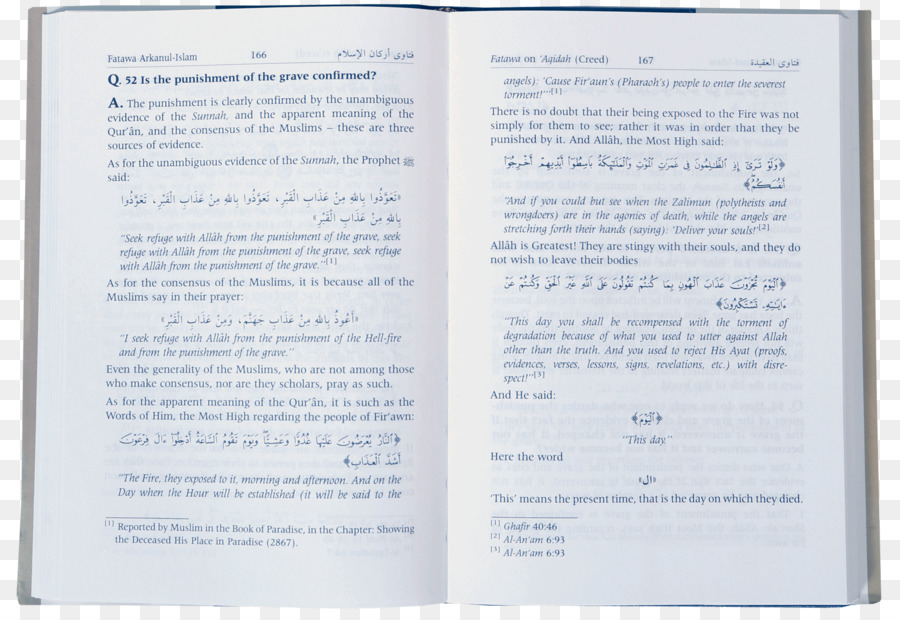 Fatawa Arkanul-Islam 166 فتاوى أركان الإسلام
Q. 52 Is the punishment of the grave confirmed?
A. The punishment is clearly confirmed by the unambiguous
evidence of the Sunnah, and the apparent meaning of the
Qur'ân, and the consensus of the Muslims – these are three
sources of evidence.
As for the unambiguous evidence of the Sunnah, the Prophet ﷺ
said:
«تَعَوَّذُوا بِاللهِ مِنْ عَذَابِ الْقَبْرِ، تَعَوَّذُوا بِاللهِ مِنْ عَذَابِ الْقَبْرِ، تَعَوَّذُوا
بِاللهِ مِنْ عَذَابِ الْقَبْرِ»
"Seek refuge with Allâh from the punishment of the grave, seek
refuge with Allâh from the punishment of the grave, seek refuge
with Allâh from the punishment of the grave."[1]
As for the consensus of the Muslims, it is because all of the
Muslims say in their prayer:
«أَعُوذُ بِاللهِ مِنْ عَذَابِ جَهَنَّمَ، وَمِنْ عَذَابِ الْقَبْرِ»
"I seek refuge with Allâh from the punishment of the Hell-fire
and from the punishment of the grave."
Even the generality of the Muslims, who are not among those
who make consensus, nor are they scholars, pray as such.
As for the apparent meaning of the Qur'ân, it is such as the
Words of Him, the Most High regarding the people of Fir'awn:
﴿النَّارُ يُعْرَضُونَ عَلَيْهَا غُدُوًّا وَعَشِيًّا وَيَوْمَ تَقُومُ السَّاعَةُ أَدْخِلُوا ءَالَ فِرْعَوْنَ
أَشَدَّ الْعَذَابِ﴾
"The Fire, they exposed to it, morning and afternoon. And on the
Day when the Hour will be established (it will be said to the
[1] Reported by Muslim in the Book of Paradise, in the Chapter: Showing
the Deceased His Place in Paradise (2867).
Fatawa on 'Aqidah (Creed) 167 فتاوى العقيدة
angels): 'Cause Fir'aun's (Pharaoh's) people to enter the severest
torment!'"[1]
There is no doubt that their being exposed to the Fire was not
simply for them to see; rather it was in order that they be
punished by it. And Allâh, the Most High said:
﴿وَلَوْ تَرَىٰ إِذِ الظَّالِمُونَ فِي غَمَرَاتِ الْمَوْتِ وَالْمَلَائِكَةُ بَاسِطُوا أَيْدِيهِمْ أَخْرِجُوا
أَنفُسَكُمُ﴾
"And if you could but see when the Zalimun (polytheists and
wrongdoers) are in the agonies of death, while the angels are
stretching forth their hands (saying): 'Deliver your souls!'"[2]
Allâh is Greatest! They are stingy with their souls, and they do
not wish to leave their bodies
﴿الْيَوْمَ تُجْزَوْنَ عَذَابَ الْهُونِ بِمَا كُنتُمْ تَقُولُونَ عَلَى اللَّهِ غَيْرَ الْحَقِّ وَكُنتُمْ عَنْ
ءَايَاتِهِ تَسْتَكْبِرُونَ﴾
"This day you shall be recompensed with the torment of
degradation because of what you used to utter against Allah
other than the truth. And you used to reject His Ayat (proofs,
evidences, verses, lessons, signs, revelations, etc.) with disre-
spect!"[3]
And He said:
﴿الْيَوْمَ﴾
"This day."
Here the word
«ال»
'This' means the present time, that is the day on which they died.
[1] Ghafir 40:46
[2] Al-An'am 6:93
[3] Al-An'am 6:93